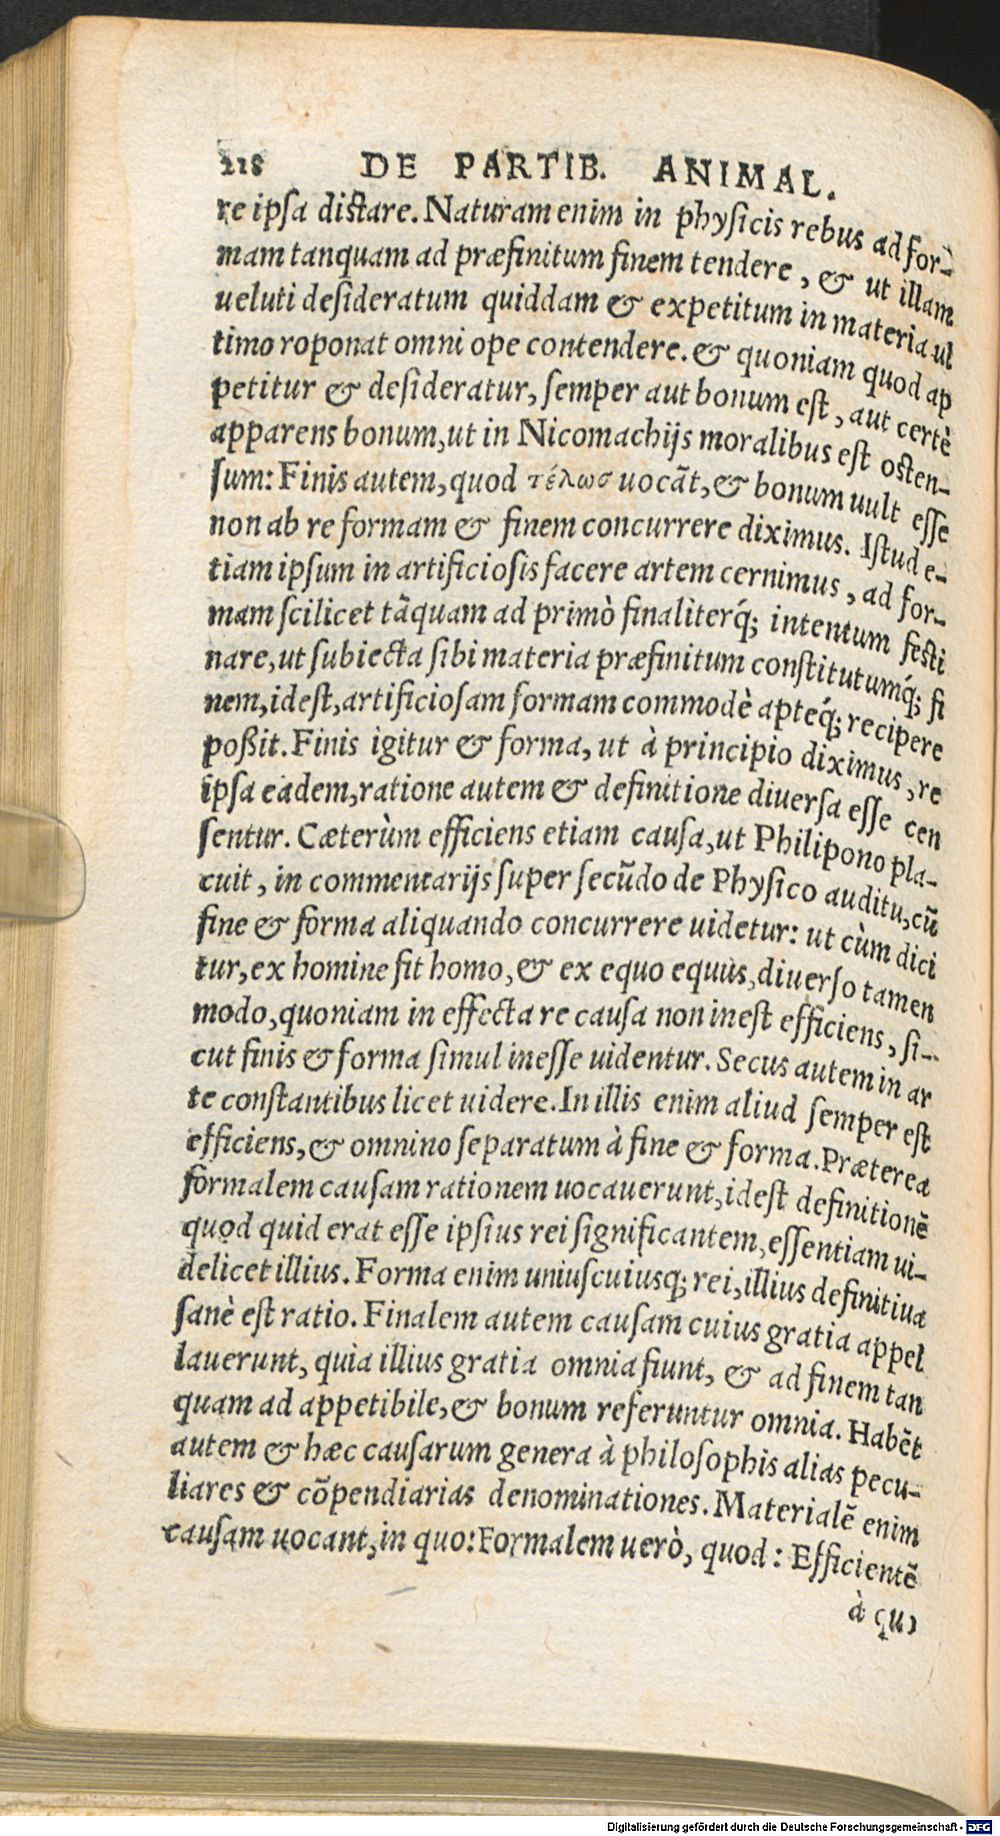 218 DE PARTIB. ANIMAL.
re ipsa distare. Naturam enim in physicis rebus ad for-
mam tanquam ad præfinitum finem tendere, & ut illam
ueluti desideratum quiddam & expetitum in materia ul
timo roponat omni ope contendere. & quoniam quod ap
petitur & desideratur, semper aut bonum est, aut certè
apparens bonum, ut in Nicomachijs moralibus est osten-
sum: Finis autem, quod τέλωσ uocāt, & bonum uult esse
non ab re formam & finem concurrere diximus. Istud e-
tiam ipsum in artificiosis facere artem cernimus, ad for-
mam scilicet tāquam ad primò finaliterq́; intentum festi
nare, ut subiecta sibi materia præfinitum constitutumq́; fi
nem, idest, artificiosam formam commodè apteq́; recipere
poßit. Finis igitur & forma, ut à principio diximus, re
ipsa eadem, ratione autem & definitione diuersa esse cen
sentur. Cæterùm efficiens etiam causa, ut Philipono pla-
cuit, in commentarijs super secūdo de Physico auditu, cū
fine & forma aliquando concurrere uidetur: ut cùm dici
tur, ex homine fit homo, & ex equo equus, diuerso tamen
modo, quoniam in effecta re causa non inest efficiens, si-
cut finis & forma simul inesse uidentur. Secus autem in ar
te constantibus licet uidere. In illis enim aliud semper est
efficiens, & omnino separatum à fine & forma. Præterea
formalem causam rationem uocauerunt, idest definitionē
quod quid erat esse ipsius rei significantem, essentiam ui-
delicet illius. Forma enim uniuscuiusq; rei, illius definitiua
sanè est ratio. Finalem autem causam cuius gratia appel
lauerunt, quia illius gratia omnia fiunt, & ad finem tan
quam ad appetibile, & bonum referuntur omnia. Habēt
autem & hæc causarum genera à philosophis alias pecu-
liares & cōpendiarias denominationes. Materialē enim
causam uocant, in quo: Formalem uerò, quod: Efficientē
à quo
Digitalisierung gefördert durch die Deutsche Forschungsgemeinschaft - DFG